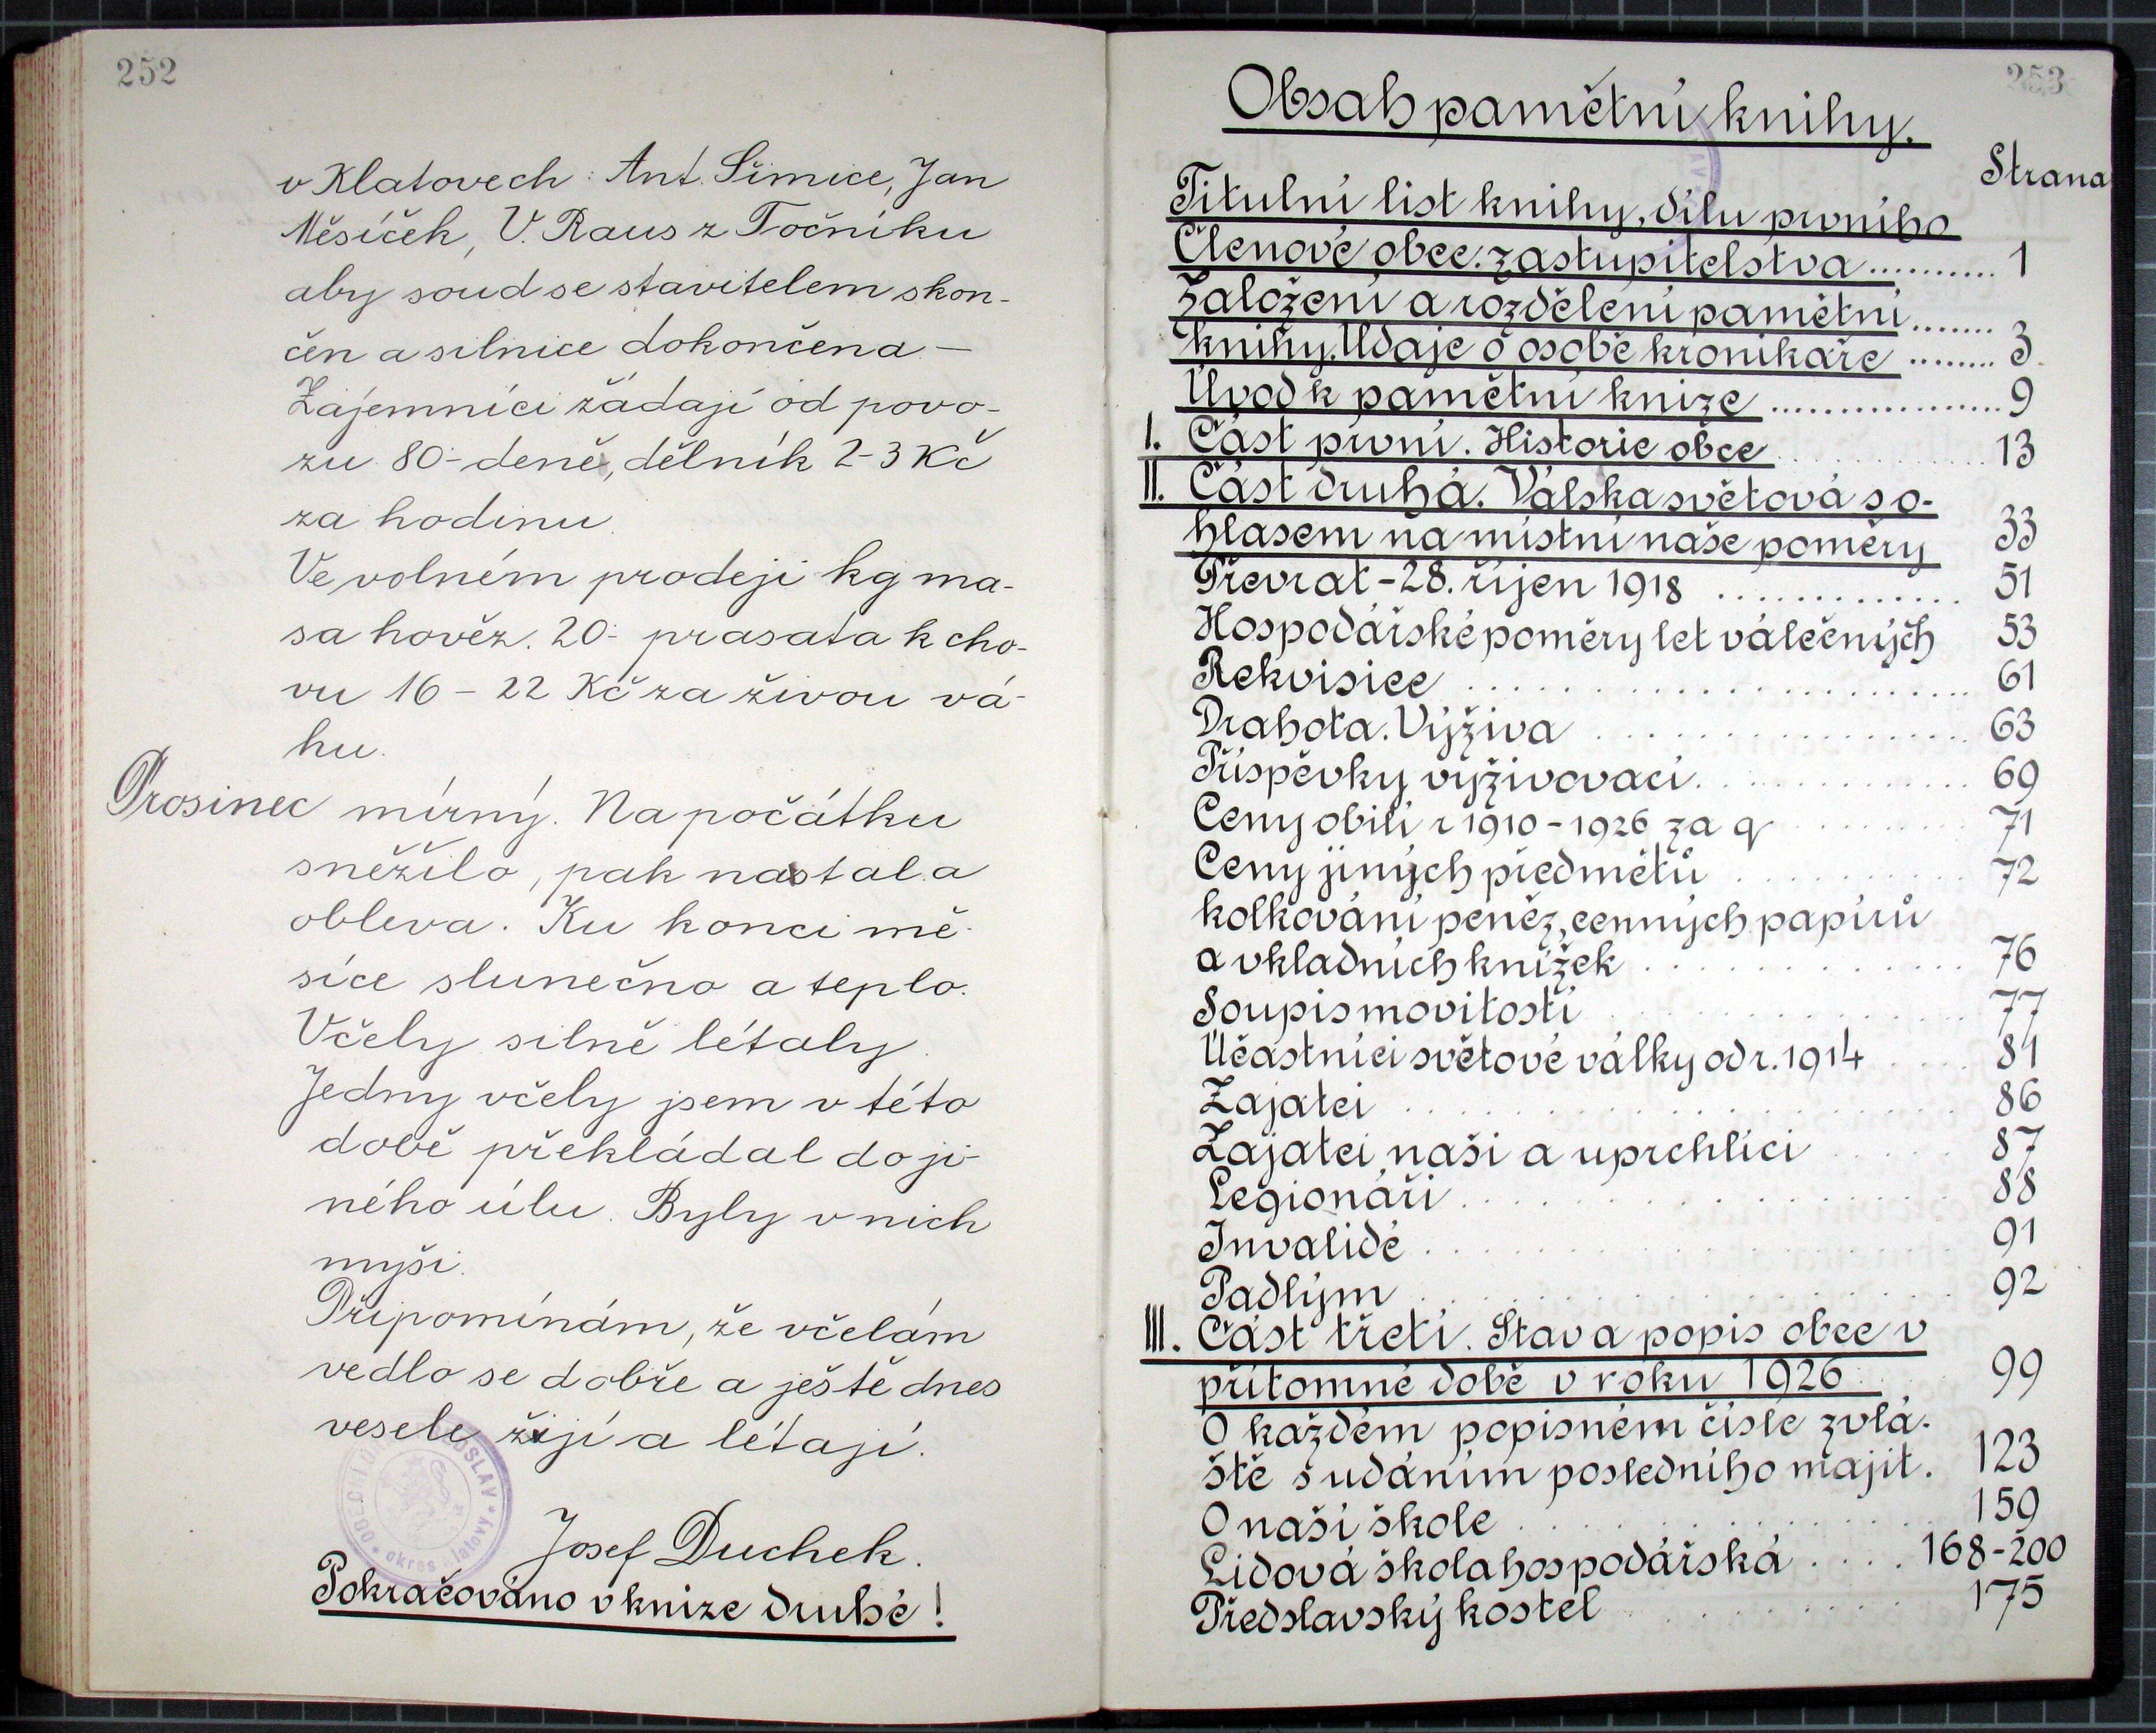 252
v Klatovech: Ant. Šimice, Jan
Měsíček, V. Raus z Točníku
aby soud se stavitelem skon-
čen a silnice dokončena —
Zájemníci žádají od povo-
zu 80·- deně, dělník 2-3 Kč
za hodinu.
Ve volném prodeji kg ma-
sa hověz. 20·- prasata k cho-
vu 16 - 22 Kč za živou vá-
hu.
Prosinec mírný. Na počátku
sněžilo, pak nastala
obleva. Ku konci mě-
síce slunečno a teplo.
Včely silně létaly.
Jedny včely jsem v této
době překládal do ji-
ného úlu. Byly v nich
myši.
Připomínám, že včelám
vedlo se dobře a ještě dnes
vesele žijí a létají.
Josef Duchek.
Pokračováno v knize druhé!
253
Obsah pamětní knihy.
Strana
Titulní list knihy, dílu prvního
Členové obec. zastupitelstva .......... 1
Založení a rozdělení pamětní ....... 3
knihy. Údaje o osobě kronikáře ........ 3.
Úvod k pamětní knize .................. 9
I. Část první. Historie obce ............ 13
II. Část druhá. Válska světová s o-
hlasem na místní naše poměry 33
Převrat - 28. říjen 1918 ............. 51
Hospodářské poměry let válečných 53
Rekvisice ........................ 61
Drahota. Výživa .................. 63
Příspěvky vyživovací .............. 69
Ceny obilí r 1910 - 1926 za q ......... 71
Ceny jiných předmětů ........... 72
kolkování peněz, cenných papírů
a vkladních knížek ............. 76
Soupis movitostí ............... 77
Účastníci světové války od r. 1914 .... 81
Zajatci ..................... 86
Zajatci naši a uprchlíci ...... 87
Legionáři ................... 88
Invalidé .................... 91
Padlým .................... 92
III. Část třetí. Stav a popis obce v
přítomné době v roku 1926 .. 99
O každém popisném čísle zvlá-
ště s udáním posledního majit. 123
O naší škole ................ 159
Lidová škola hospodářská .... 168-200
Předslavský kostel ........... 175